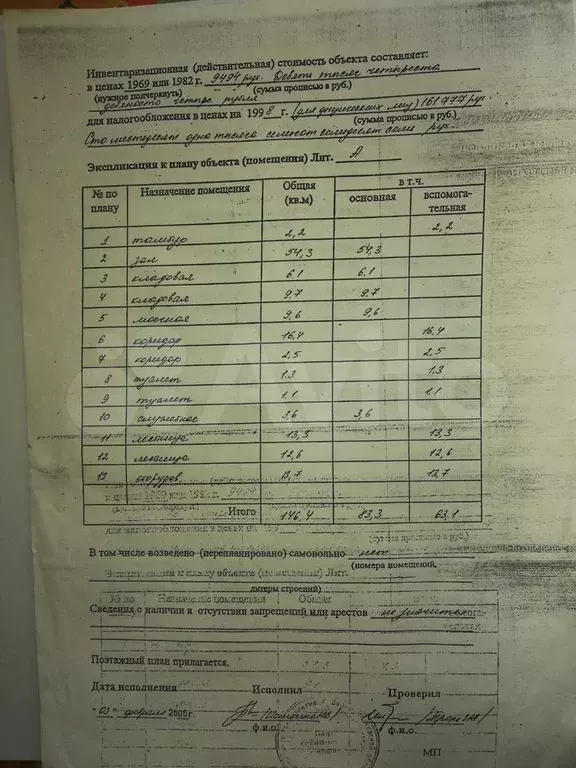 Инвентаризационная (действительная) стоимость объекта составляет:
в ценах 1969 или 1982 г. 9494 руб. Девять тысяч четыреста
(нужное подчеркнуть) (сумма прописью в руб.)
девяносто четыре рубля
для налогообложения в ценах на 1998 г. (для физических лиц) 161 777 руб.
(сумма прописью в руб.)
Сто шестьдесят одна тысяча семьсот семьдесят семь руб.
Экспликация к плану объекта (помещения) Лит. А
№ по плану Назначение помещения Общая (кв.м) в т.ч. основная вспомога-тельная
1 тамбур 2,2 2,2
2 зал 54,3 54,3
3 кладовая 6,1 6,1
4 кладовая 9,7 9,7
5 моечная 9,6 9,6
6 коридор 16,4 16,4
7 коридор 2,5 2,5
8 туалет 1.3 1.3
9 туалет 1.1 1.1
10 служебное 3,6 3,6
11 лестница 13,3 13,3
12 лестница 12,6 12,6
13 13,7 13,7
Итого 146,4 83,3 63,1
для налогообложения в ценах на
(сумма прописью в руб.)
В том числе возведено (перепланировано) самовольно нет
(номера помещений,
Экспликация к плану объекта (помещения) Лит.
литеры строений)
№ по Назначение помещения Общая
Сведения о наличии и отсутствии запрещений или арестов не значится
Поэтажный план прилагается.
Дата исполнения Исполнил Проверил
"03" февраля 2000 г.
ф.и.о. ф.и.о.
МП
Avito